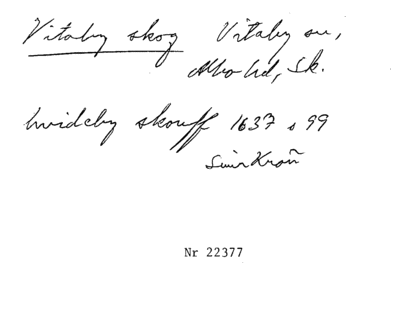 Vitaby skog Vitaby sn,
Albo hd, Sk.
hvideby skouff 1637 s 99
Nr 22377